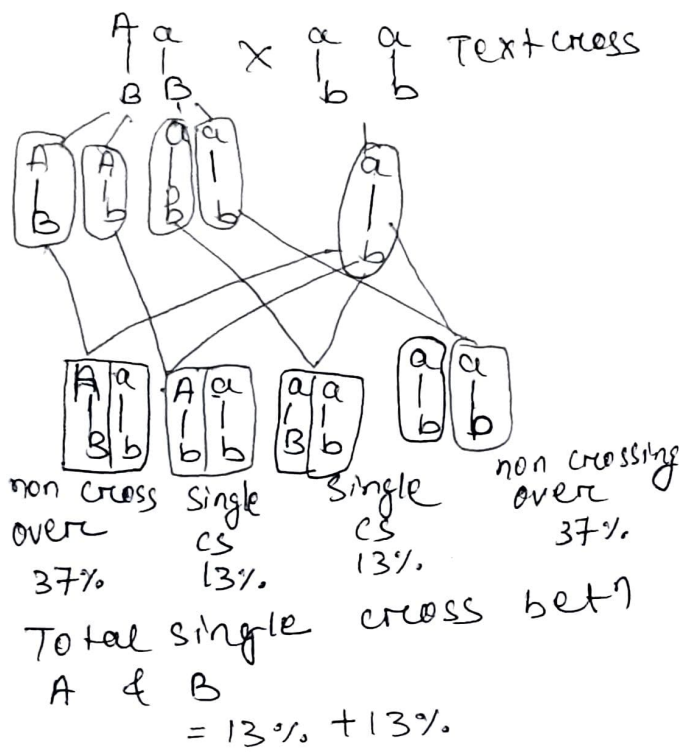 A a × a a Text cross
B B b b
A A a a a
B b B b b
A a A a a a a a
B b b b B b b b
non cross over 37%
single cs 13%.
single cs 13%.
non crossing over 37%.
Total single cross betn
A & B
= 13% + 13%.